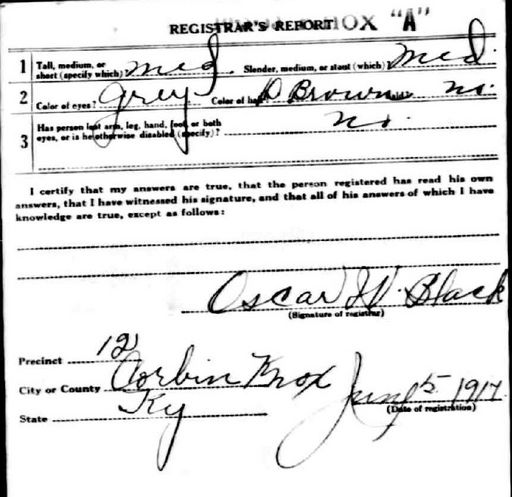 REGISTRAR'S REPORT KNOX "A"
1 Tall, medium, or short (specify which) Med. Slender, medium, or stout (which) Med.
2 Color of eyes? Grey Color of hair D Brown Bald? No.
3 Has person lost arm, leg, hand, foot, or both eyes, or is he otherwise disabled (specify)? No.
I certify that my answers are true, that the person registered has read his own
answers, that I have witnessed his signature, and that all of his answers of which I have
knowledge are true, except as follows:
Oscar W. Black
(Signature of registrar)
Precinct 12
City or County Corbin Knox
State Ky
June 5 1917
(Date of registration)